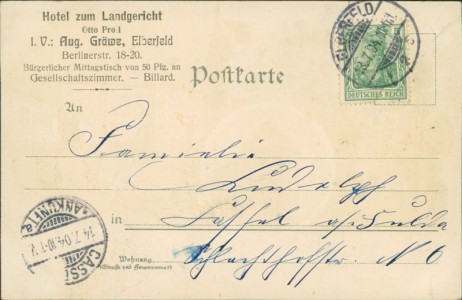 Hotel zum Landgericht
Otto Prol
I. V.: Aug. Gräwe, Elberfeld
Berlinerstr. 18-20.
Bürgerlicher Mittagstisch von 50 Pfg. an
Gesellschaftszimmer. — Billard.
Postkarte
ELBERFELD
DEUTSCHES REICH
An
Familie
Ludolph
in Cassel
Schlachthofstr. N 6
Wohnung
(Straße und Hausnummer)
CASSEL
ANKUNFT
14.7.04.10-11V.